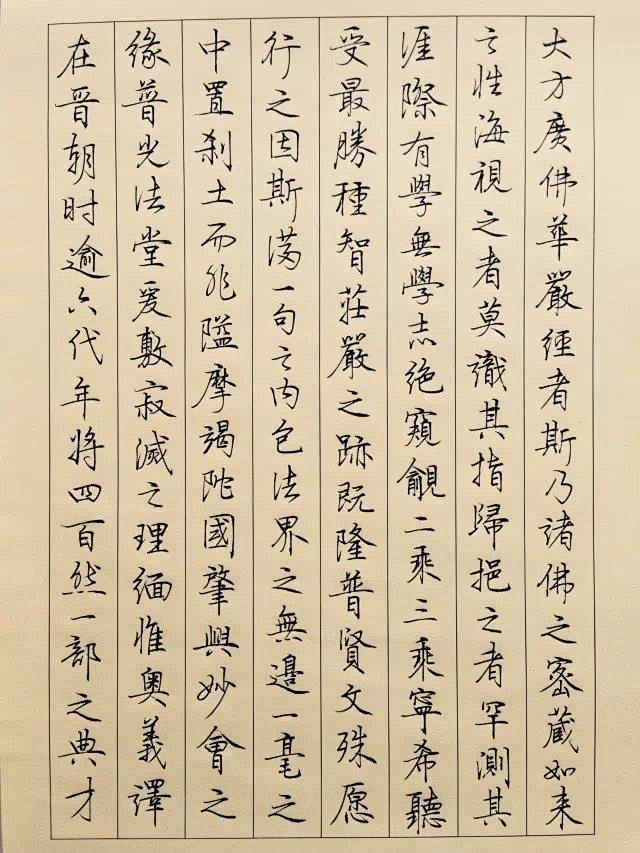 大方廣佛華嚴經者斯乃諸佛之密藏如来
之性海視之者莫識其指歸挹之者罕測其
涯際有學無學志絶窺覦二乘三乘寧希聽
受最勝種智莊嚴之跡既隆普賢文殊愿
行之因斯滿一句之内包法界之無邊一毫之
中置刹土而非隘摩竭陁國肇興妙會之
緣普光法堂爰敷寂滅之理緬惟奥義譯
在晋朝时逾六代年将四百然一部之典才